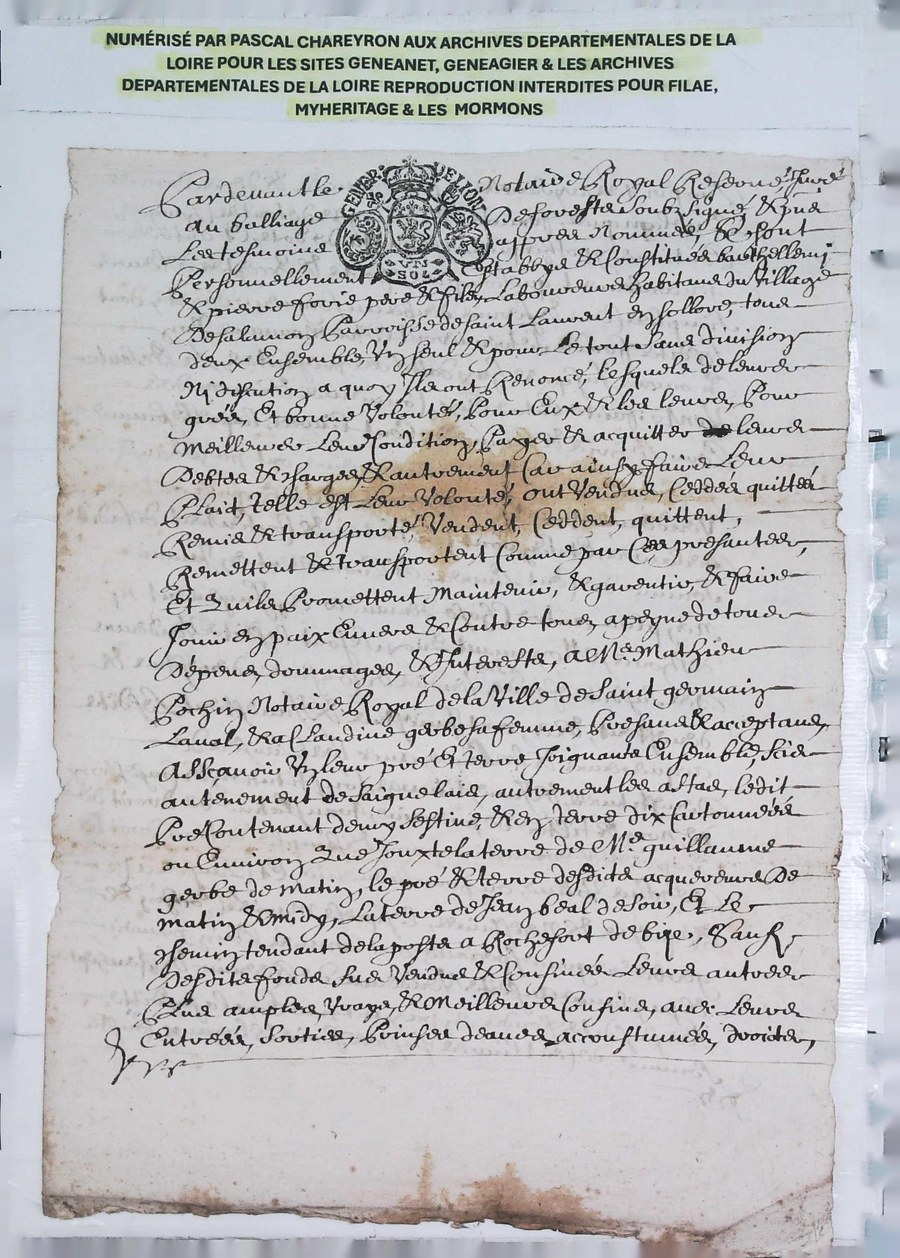 NUMÉRISÉ PAR PASCAL CHAREYRON AUX ARCHIVES DEPARTEMENTALES DE LA
LOIRE POUR LES SITES GENEANET, GENEAGIER & LES ARCHIVES
DEPARTEMENTALES DE LA LOIRE REPRODUCTION INTERDITES POUR FILAE,
MYHERITAGE & LES MORMONS
GENER DE LYON
SOLZ
Pardevant le Notaire Royal Reservé, juré
au balliage de forestz soubzsigné, & pnt
Les tesmoins appres Nommés, & sont
Personnellement establys & Constitués barthellemi
& pierre forie pere & filz, Laboureurs habitans du Village
de Parroisse de saint Laurent en sollore, tous
deux Ensemble, Un seul & pour Le tout sans division
Ni discution a quoy Ils ont Renoncé, lesquels de leurs
grés, Et bonne Volonté, Pour Eux & les leurs, Pour
Meilleurer Leur Condition, Payer & acquitter de leurs
Debtes & charges, & autrement Car ainsy faire Leur
Plait, telle est Leur Volonté, ont Vendus, Ceddés quittés
Remis & transporté, Vendent, Ceddent, quittent,
Remettent & transportent Comme par Ces presantes,
Et Promettent Maintenir, & garentir, & faire
Jouir en paix Envers & Contre tous, a peyne de tous
Dépens, dommages, & Interestz, a Me Mathieu
Pochin Notaire Royal de la Ville de Saint germain
Laval, & a Claudine gerbe sa femme, Presans & acceptans,
Assçavoir Un leur pré Et terre Joignants Ensemble, scis
au tenement de autrement les astas, ledit
Pré Contenant demy & en terre dix Cartonnées
ou Environ Que Jouxte la terre de Me guillaume
gerbe de matin, le pré & terre desdits acquereurs De
matin & midy, La terre de Jean beal de soir, Et Le
chemin tendant de la poste a Rochefort de bize, Sauf
Desdits fonds sus Vendus & Confinés Leurs autres
Plus amples, Vrays, & Meilleurs Confins, avec Leurs
Entrées, Sorties, Prinses deaues accoustumées, droits,